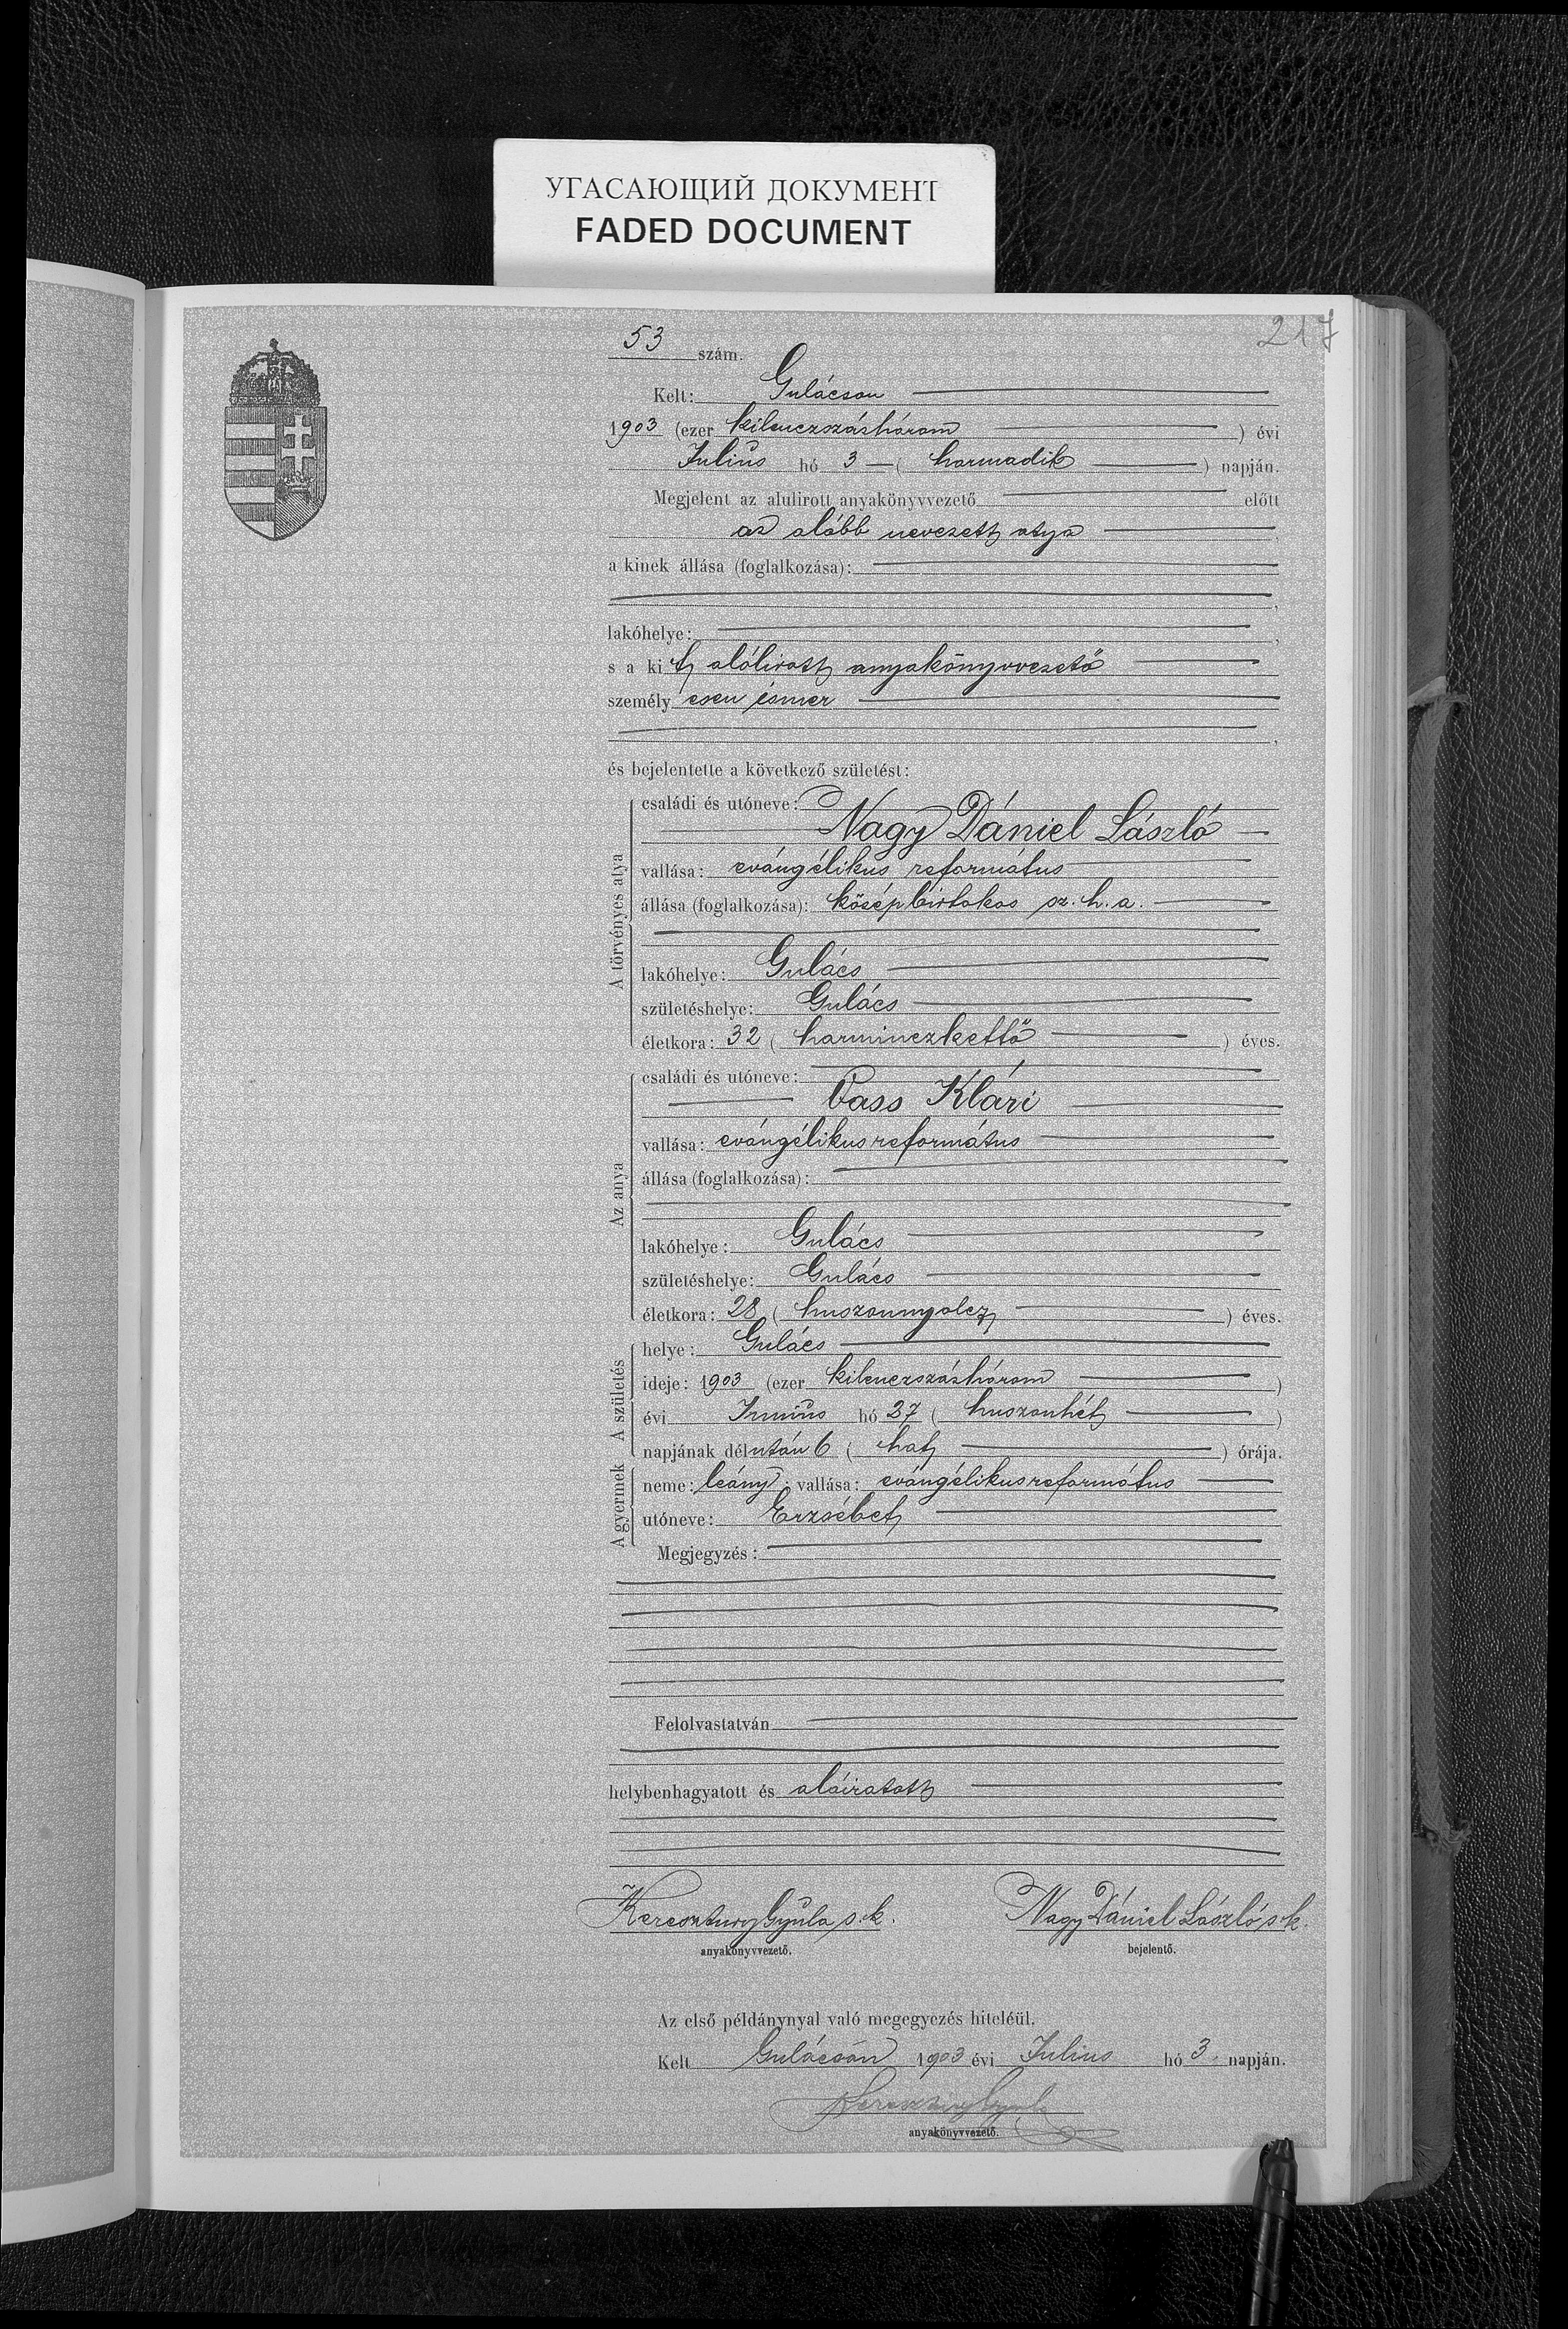 УГАСАЮЩИЙ ДОКУМЕНТ
FADED DOCUMENT
217
53 szám.
Kelt: Gulácson
1903 (ezer kilenczszázhárom) évi
Julius hó 3 (harmadik) napján.
Megjelent az alulirott anyakönyvvezető előtt
az alább nevezett atya
a kinek állása (foglalkozása):
lakóhelye:
s a kit alólirott anyakönyvvezető
személyesen ismer
és bejelentette a következő születést:
A törvényes atya
családi és utóneve:
Nagy Dániel László
vallása: evángélikus református
állása (foglalkozása): középbirtokos sz. h. a.
lakóhelye: Gulács
születéshelye: Gulács
életkora: 32 (harminczkettő) éves.
Az anya
családi és utóneve:
Vass Klári
vallása: evángélikus református
állása (foglalkozása):
lakóhelye: Gulács
születéshelye: Gulács
életkora: 28 (huszonnyolcz) éves.
A születés
helye: Gulács
ideje: 1903 (ezer kilenczszázhárom)
évi Junius hó 27 (huszonhét)
napjának délután 6 (hat) órája.
A gyermek
neme: leány; vallása: evángélikus református
utóneve: Erzsébet
Megjegyzés:
Felolvastatván
helybenhagyatott és aláiratott
Keresztury Gyula s. k. Nagy Dániel László s. k.
anyakönyvvezető. bejelentő.
Az első példánynyal való megegyezés hiteléül.
Kelt Gulácson 1903 évi Julius hó 3 napján.
Keresztury Gyula
anyakönyvvezető.